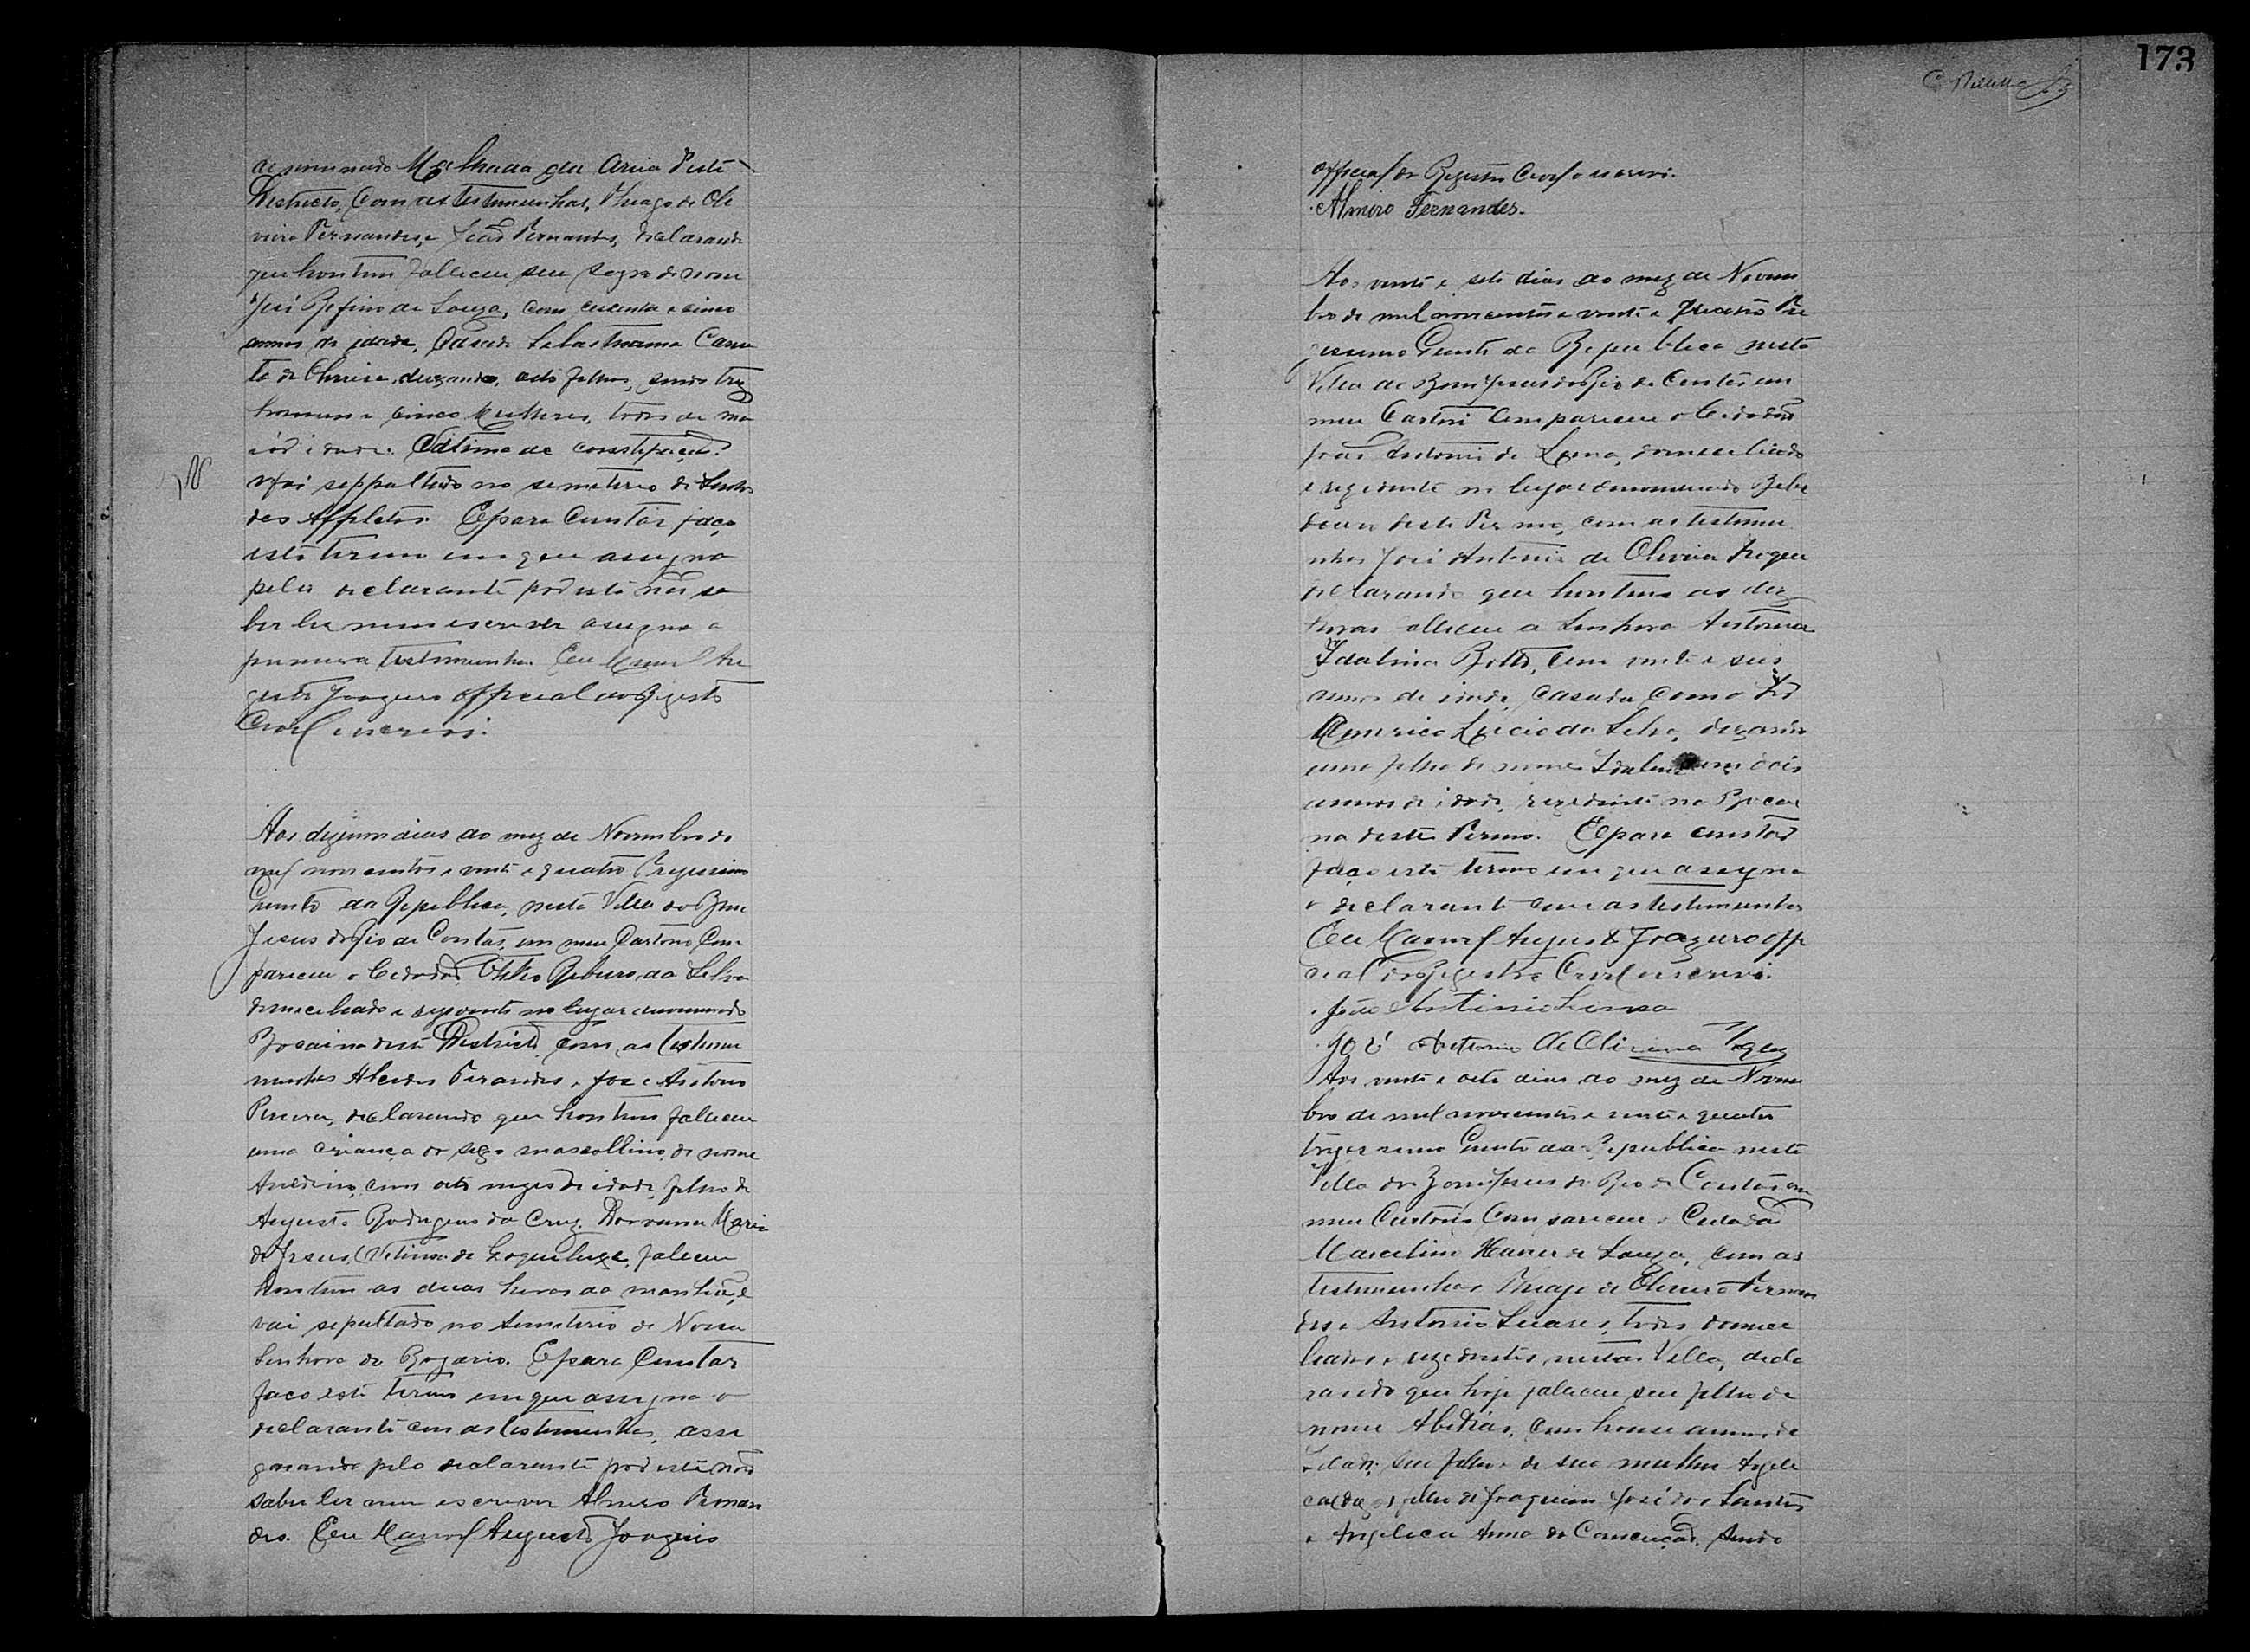 denominado Malhada da Areia deste
Districto, com as testimunhas, Thiago de Oli
veira Fernandes, e João Fernandes, declarando
que hontem falleceu seu sogro de nome
José Rofino de Souza, com cecenta e cinco
annos de idade, Casado Sebastianna
de Oliveira, deixando, oito filhos, sendo trez
homens e cinco mulheres, todos de ma
ior idade. Vitima de constipação.
Vai seppultado no semeterio de
dos Afflictos. E para Constar faço
este termo em que assigna
pelo declarante por este não sa
ber ler nem escrever assigna a
primeira testimunha. Eu Manoel Au
gusto Joazeiro official do Registo
Civil escrevi.
Aos dezenove dias do mez de Novembro de
mil novecentos e vinte e quatro Tregessimo
Quinto da Republica, nesta Villa do Bom
Jesus do Rio de Contas, em meu Cartorio Com
pareceu o Cidadão da Silva
domeciliado e rezedente no lugar denominado
Bocaina deste Districto, com as testemu
munhas Alcides Fernandes, e José Antonio
Pereira, declarando que hontem falleceu
uma criança do sexo mascollino, de nome
com oito mezes de idade, filho de
Augusto Rodrigues da Cruz, Maria
de Jesus, Vitima de falleceu
hontem as duas horas da manhã, e
vai sepultado no semeterio de Nossa
Senhora do Rozario. E para Constar
faço este termo em que assigna o
declarante com as testemunhas, assi
gnando pelo declarante por este não
saber ler nem escrever Almiro Fernan
des. Eu Manoel Augusto Joazeiro
173
official do Registro Civil o escrevi.
Almiro Fernandes.
Aos vinte e sete dias do mez de Novem
bro de mil novecentos e vinte e quatro Tre
gessimo Quinto da Republica nesta
Villa de Bom Jesus do Rio de Contas em
meu Cartorio Compareceu o Cidadão
João Antonio de Lima, domeciliado
e rezedente no lugar denominado Bebe
douro deste Termo, com as testimu
nhas José Antonio de Oliveira
declarando que hontem as dez
horas falleceu a Senhora Antonia
Idalina Botto, com vinte e seis
annos de idade, casada Com o Sr
Americo Lucio da Silva, deixando
uma filha de nome com dois
annos de idade, rezedente na Bocai
na deste Termo. E para constar
faço este termo em que assigna
o declarante com as testimunhas
Eu Manoel Augusto Joazeiro offi
cial do Registro Civil escrevi.
João Antonio
José Antonio de Oliveira
Aos vinte e oito dias do mez de Novem
bro de mil novecentos e vinte e quatro
trigessimo Quinto da Republica nesta
Villa do Bom Jesus do Rio de Contas em
meu Cartorio Compareceu o Cidadão
Marcelino Xavier de Souza, com as
testimunhas Thiago de Oliveira Fernan
des e Antonio Soares, todos domeci
liados e rezedentes nesta Villa, decla
rando que hoje falleceu seu filho de
nome Abdias, com annos de
idade, seu filho e de sua mulher Ange
lica filha de Joaquim José dos Santos
e Angelica Anna da Conceição, sendo